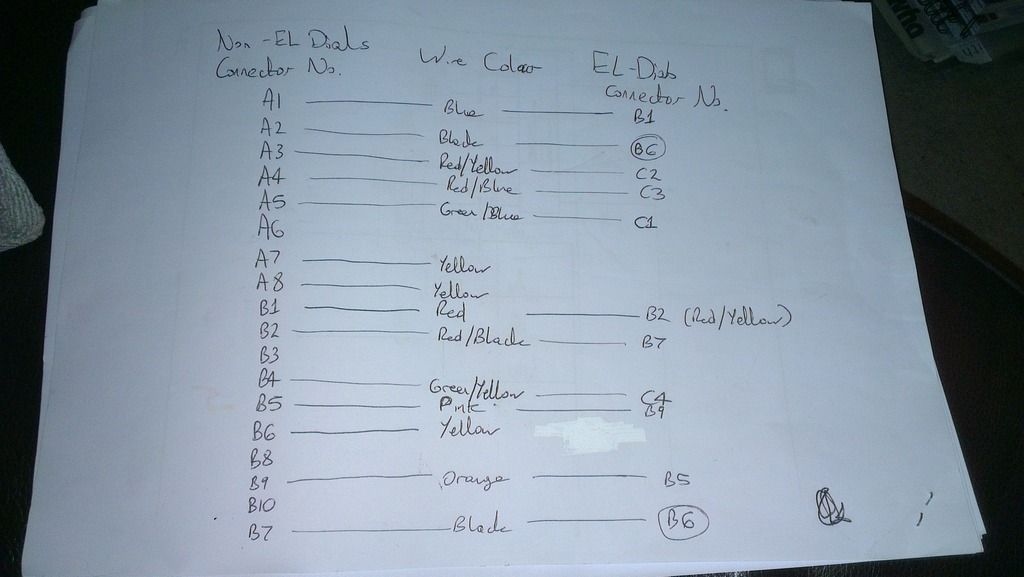 Non-EL Dials Wire Colour EL-Dials
Connector No. Connector No.
A1 Blue B1
A2 Black B6
A3 Red/Yellow C2
A4 Red/Blue C3
A5 Green/Blue C1
A6
A7 Yellow
A8 Yellow
B1 Red B2 (Red/Yellow)
B2 Red/Black B7
B3
B4 Green/Yellow C4
B5 Pink B9
B6 Yellow
B8
B9 Orange B5
B10
B7 Black B6